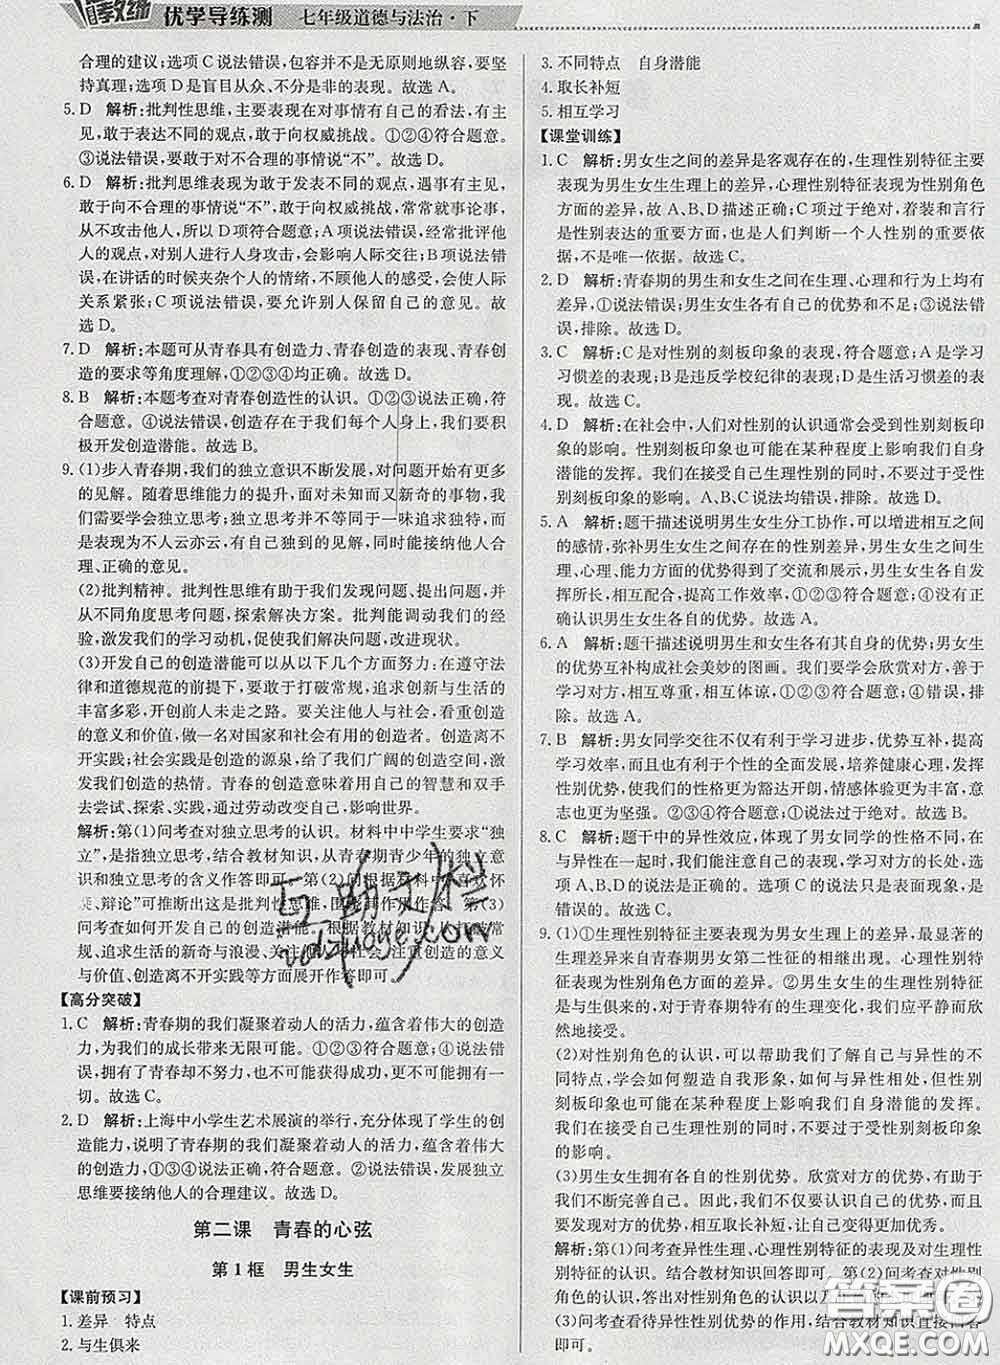 优学导练测 七年级道德与法治·下
合理的建议；选项C说法错误，包容并不是无原则地纵容，要坚
持真理；选项D是盲目从众、不分是非的表现。故选A。
5. D 解析：批判性思维，主要表现在对事情有自己的看法，有主
见，敢于表达不同的观点，敢于向权威挑战。①②④符合题意。
③说法错误，要敢于对不合理的事情说“不”。故选D。
6. D 解析：批判思维表现为敢于发表不同的观点，遇事有主见，
敢于向不合理的事情说“不”，敢于向权威挑战，常常就事论事，
从不攻击他人，所以D项符合题意；A项说法错误，经常批评他
人的观点，对别人进行人身攻击，会影响人际交往；B项说法错
误，在讲话的时候夹杂个人的情绪，不顾他人的感受，会使人际
关系紧张；C项说法错误，要允许别人保留自己的意见。故
选D。
7. D 解析：本题可从青春具有创造力、青春创造的表现、青春创
造的要求等角度理解，①②③④均正确。故选D。
8. B 解析：本题考查对青春创造性的认识。①②③说法正确，符
合题意。④说法错误，创造存在于我们每个人身上，我们要积
极开发创造潜能。故选B。
9. (1)步入青春期，我们的独立意识不断发展，对问题开始有更多
的见解。随着思维能力的提升，面对未知而又新奇的事物，我
们需要学会独立思考；独立思考并不等同于一味追求独特，而
是表现为不人云亦云，有自己独到的见解，同时能接纳他人合
理、正确的意见。
(2)批判精神。批判性思维有助于我们发现问题、提出问题，并
从不同角度思考问题，探索解决方案。批判能调动我们的经
验，激发我们的学习动机，促使我们解决问题，改进现状。
(3)开发自己的创造潜能可以从以下几个方面努力：在遵守法
律和道德规范的前提下，要敢于打破常规，追求创新与生活的
丰富多彩，开创前人未走之路。要关注他人与社会，看重创造
的意义和价值，做一个对国家和社会有用的创造者。社会实践
是创造的源泉，给了我们广阔的创造空间，激
发我们创造的热情。青春的创造意味着用自己的智慧和双手
去尝试、探索、实践，通过劳动改变自己，影响世界。
解析：第(1)问考查对独立思考的认识。材料中中学生要求“独
立”，是指独立思考，结合教材知识，从青春期青少年的独立意
识、独立思考的含义作答即可。第(2)问根据材料中“喜欢怀
疑、辩论”可推断出这是批判性思维，围绕其作用作答。第(3)
问考查如何开发自己的创造潜能。根据教材知识，从打破常
规、追求生活的新奇与浪漫，关注他人与社会，看重创造的意义
与价值，创造离不开实践等方面展开作答即可。
【高分突破】
1. C 解析：青春期的我们凝聚着动人的活力，蕴含着伟大的创造
力，为我们的成长带来无限可能。①②③符合题意。④说法错
误，拥有了青春却不努力，也不可能获得成功，更不可能获得更
多成功。故选C。
2. D 解析：上海中小学生艺术展演的举行，充分体现了学生的创
造能力，说明了青春期的我们凝聚着动人的活力，蕴含着伟大
的创造力，①③④说法符合题意。②说法错误，发展独立
思维要接纳他人的合理建议。故选D。
第二课 青春的心弦
第1框 男生女生
【课前预习】
1. 差异 特点
2. 与生俱来
3. 不同特点 自身潜能
4. 取长补短
5. 相互学习
【课堂训练】
1. C 解析：男女生之间的差异是客观存在的，生理性别特征主要
表现为男生女生生理上的差异，心理性别特征表现为性别角色
方面的差异，故A、B、D描述正确；C项过于绝对，着装和言行
是性别表达的重要方面，也是人们判断一个人性别的重要依
据，不是唯一依据。故选C。
2. D 解析：青春期的男生和女生之间在生理、心理和行为上均有
差异，①说法错误；男生女生各有自己的优势和不足；③说法错
误，排除。故选D。
3. C 解析：C是对性别的刻板印象的表现，符合题意；A是学习
习惯差的表现；B是违反学校纪律的表现；D是生活习惯差的表
现。故选C。
4. D 解析：在社会中，人们对性别的认识通常会受到性别刻板印
象的影响。性别刻板印象可能会在某种程度上影响我们自身
潜能的发挥。我们在接受自己生理性别的同时，不要过于受性
别刻板印象的影响。A、B、C说法均错误，排除。故选D。
5. A 解析：题干描述说明男生女生分工协作，可以增进相互之间
的感情，弥补男生女生之间存在的性别差异，男生女生之间生
理、心理、能力方面的优势得到了交流和展示，男生女生各自发
挥所长，相互配合，提高工作效率，①②③符合题意；④没有正
确认识男生女生各自的优势。故选A。
6. A 解析：题干描述说明男生和女生各有其自身的优势；男女生
的优势互补构成社会美妙的图画。我们要欣赏对方，善于
学习对方，相互尊重，相互体谅，①②③符合题意；④错误，排
除。故选A。
7. B 解析：男女同学交往不仅有利于学习进步，优势互补，提高
学习效率，而且也有利于个性的全面发展，培养健康心理，发挥
性别优势，使我们的性格更为豁达开朗，情感体验更为丰富，意
志也更为坚强。②③④符合题意；①说法过于绝对。故选B。
8. C 解析：题干中的异性效应，体现了男女同学的性格不同，在
与异性在一起时，我们能注意自己的表现，学习对方的长处，选
项A、B、D的说法是正确的。选项C的说法只是表面现象，是
错误的。故选C。
9. (1)①生理性别特征主要表现为男女生理上的差异，最显著的
生理差异来自青春期男女第二性征的相继出现。心理性别特
征表现为性别角色方面的差异。②男生女生的性别特征，有些
是与生俱来的，对于青春期特有的生理变化，我们应平静而欣
然地接受。
(2)对性别角色的认识，可以帮助我们了解自己与异性的不
同特点，如何塑造自我形象，如何与异性相处。但是，受性别
刻板印象的影响，可能会在某种程度上影响我们自身潜能的发
挥。我们在接受自己的性别的同时，不要过于受性别刻板印象
的影响。
(3)男生女生拥有各自的性别优势。欣赏对方的优势，有助于
我们不断完善自己。因此，我们不仅要认识自己的优势，还要
发现对方的优势，相互取长补短，让我们变得更加优秀。
解析：第(1)问考查异性生理、心理性别特征的表现及对生理性
别特征的认识。结合教材知识回答即可。第(2)问考查对性别
的认识，答出对性别角色的认识及性别刻板印象的影响。第
(3)问考查如何看待异性的优势，结合教材知识直接回答
即可。
互助文栏
答案圈
MXQE.COM